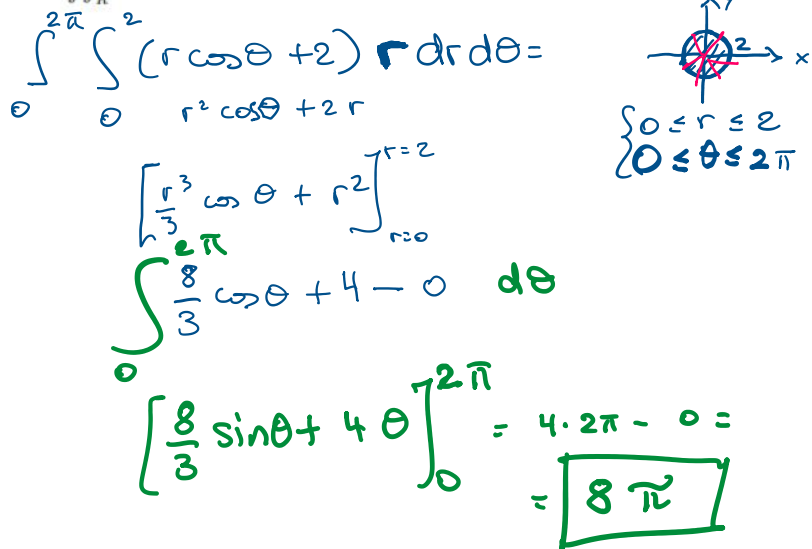 ∫₀^2π ∫₀^2 (r cosθ + 2) r dr dθ =
r² cosθ + 2 r
y
2 x
{ 0 ≤ r ≤ 2
0 ≤ θ ≤ 2π
[r³/3 cos θ + r²]_{r=0}^{r=2}
∫₀^2π 8/3 cosθ + 4 − 0 dθ
[8/3 sinθ + 4 θ]₀^2π = 4·2π − 0 =
= 8 π